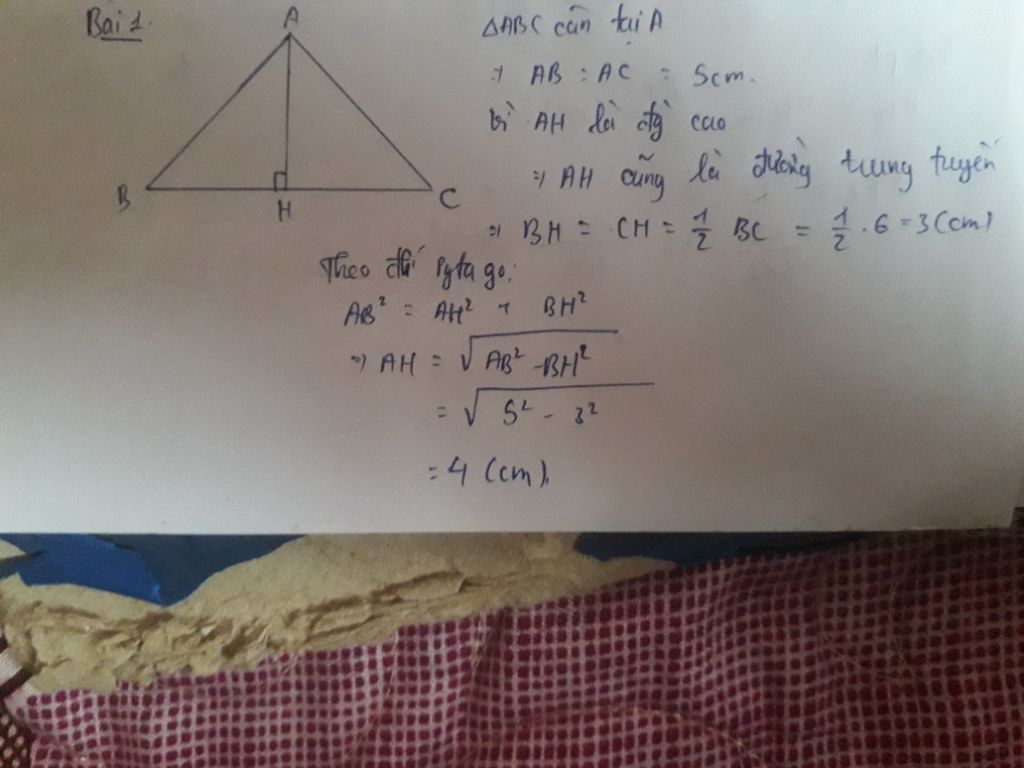 Bài 1.
A
B
H
C
ΔABC cân tại A
⇒ AB = AC = 5cm.
Vì AH là đg cao
⇒ AH cũng là đường trung tuyến
⇒ BH = CH = 1/2 BC = 1/2 . 6 = 3 (cm)
Theo đlí Pytago:
AB² = AH² + BH²
⇒ AH = √(AB² - BH²)
= √(5² - 3²)
= 4 (cm).